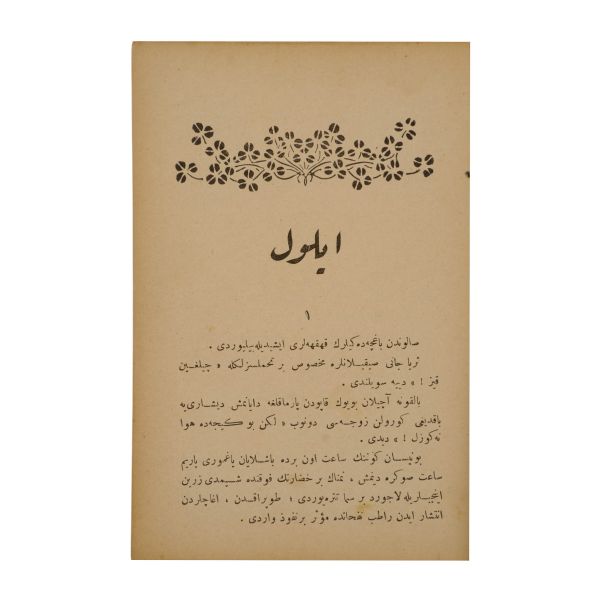 ایلول
١
صالوندن باغچه‌ده‌كیلرك قهقهه‌لری ایشیدیله‌بیلیوردی .
ثریا جانی صیقیلانلره مخصوص بر تحملسزلكله « چیلغین
قیز ! » دییه سویلندی .
بالقونه آچیلان بویوك قاپودن پارماقلغه دایانمش دیشاری‌یه
باقدیغی كورولن زوجه‌سی دونوب « لكن بو كیجه‌ده هوا
نه‌كوزل ! » دیدی .
بونیسان كوننك ساعت اون برده باشلایان یاغموری یاریم
ساعت صوكره دینمش ، نمناك بر خضارتك فوقنده شیمدی زرین
لاجورد بر سما تتره‌یوردی ؛ طوپراقدن ، اغاجلردن
انتشار ایدن راطب نفحاتده مؤثر بر نفوذ واردی .